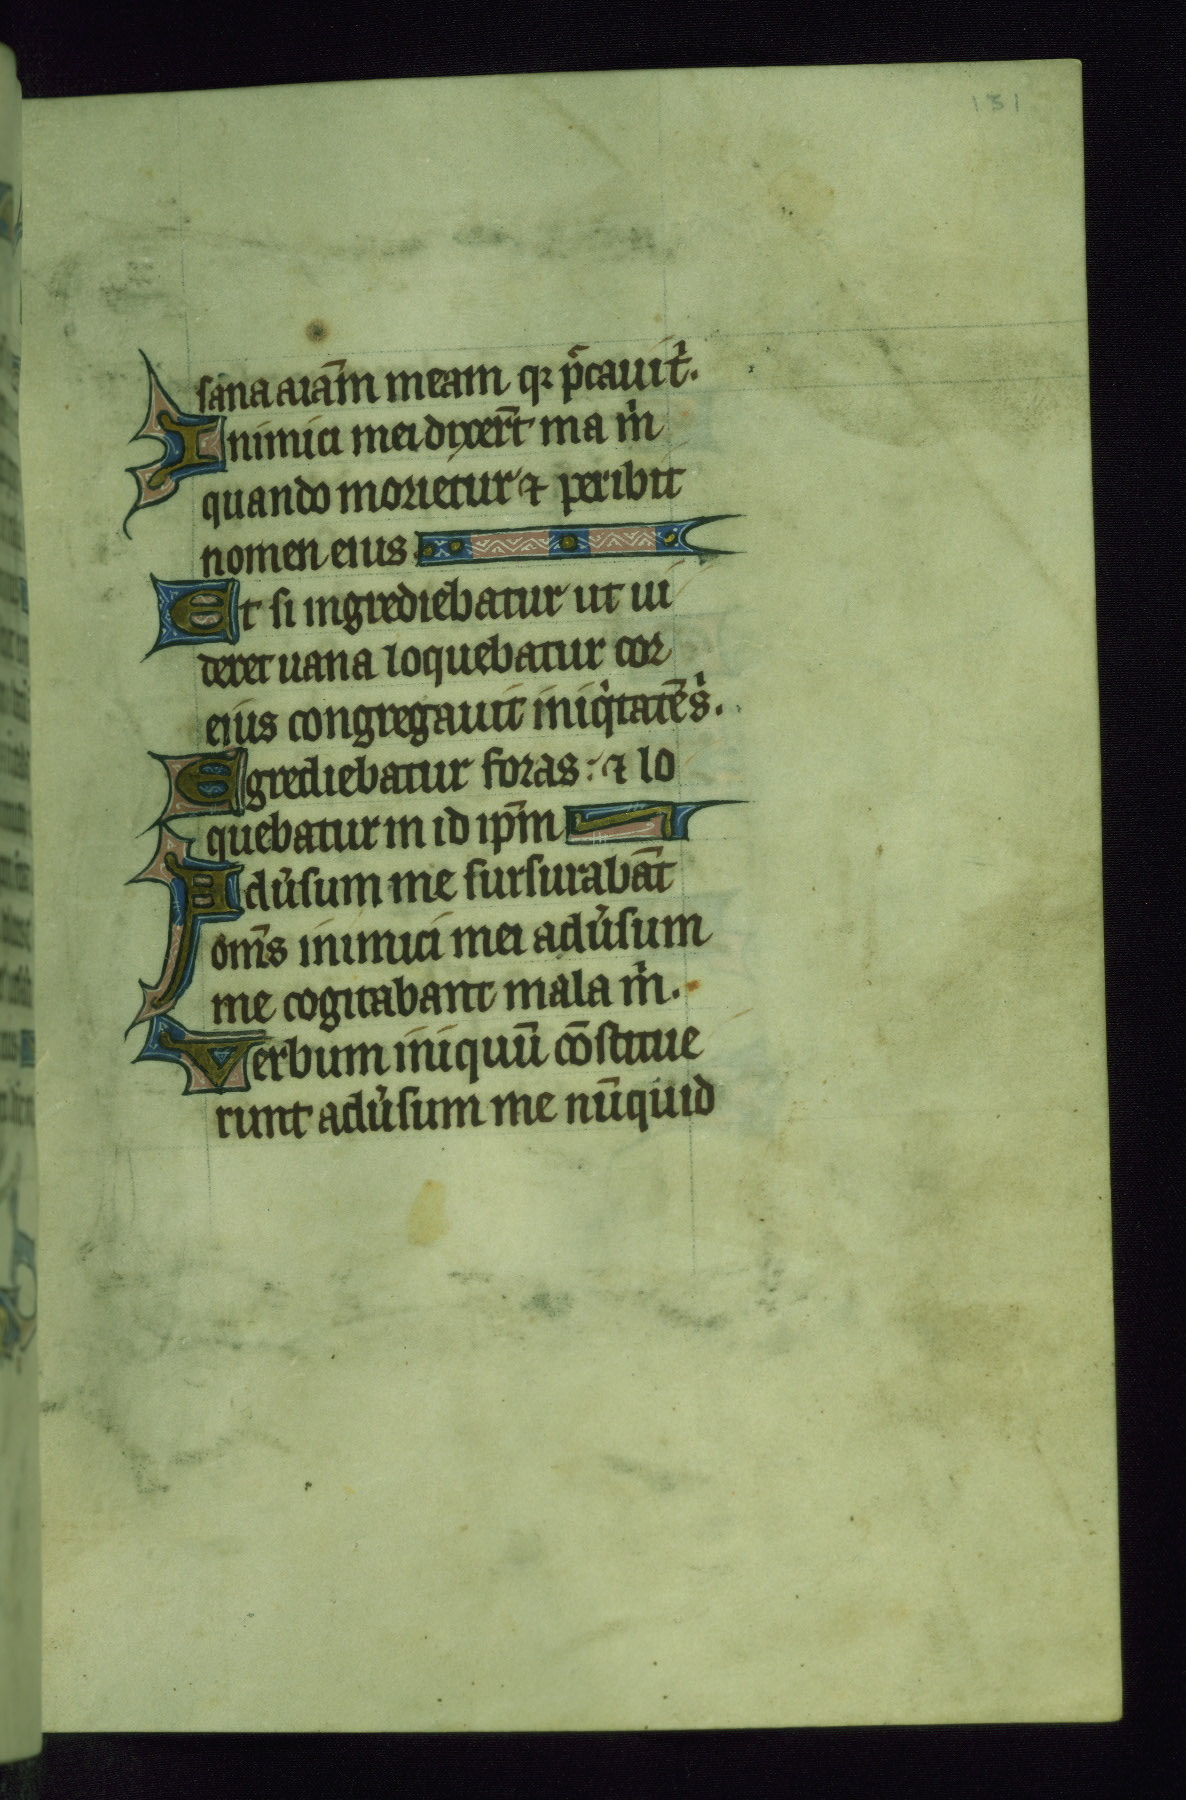 131
sana aiām meam qꝛ p̄cauit̾.
Inimici mei dixer̄t ma m̍
quando morietur ⁊ peribit
nomen eius
Et si ingrediebatur ut ui
deret uana loquebatur cor
eius congregauit iniq̍tatēs̍.
Egrediebatur foras : ⁊ lo
quebatur in id ip̄m
Adu̾sum me sursurabāt
om̄s inimici mei adu̾sum
me cogitabant mala m̍.
Verbum iniquū cōstitue
runt adu̾sum me nūquid